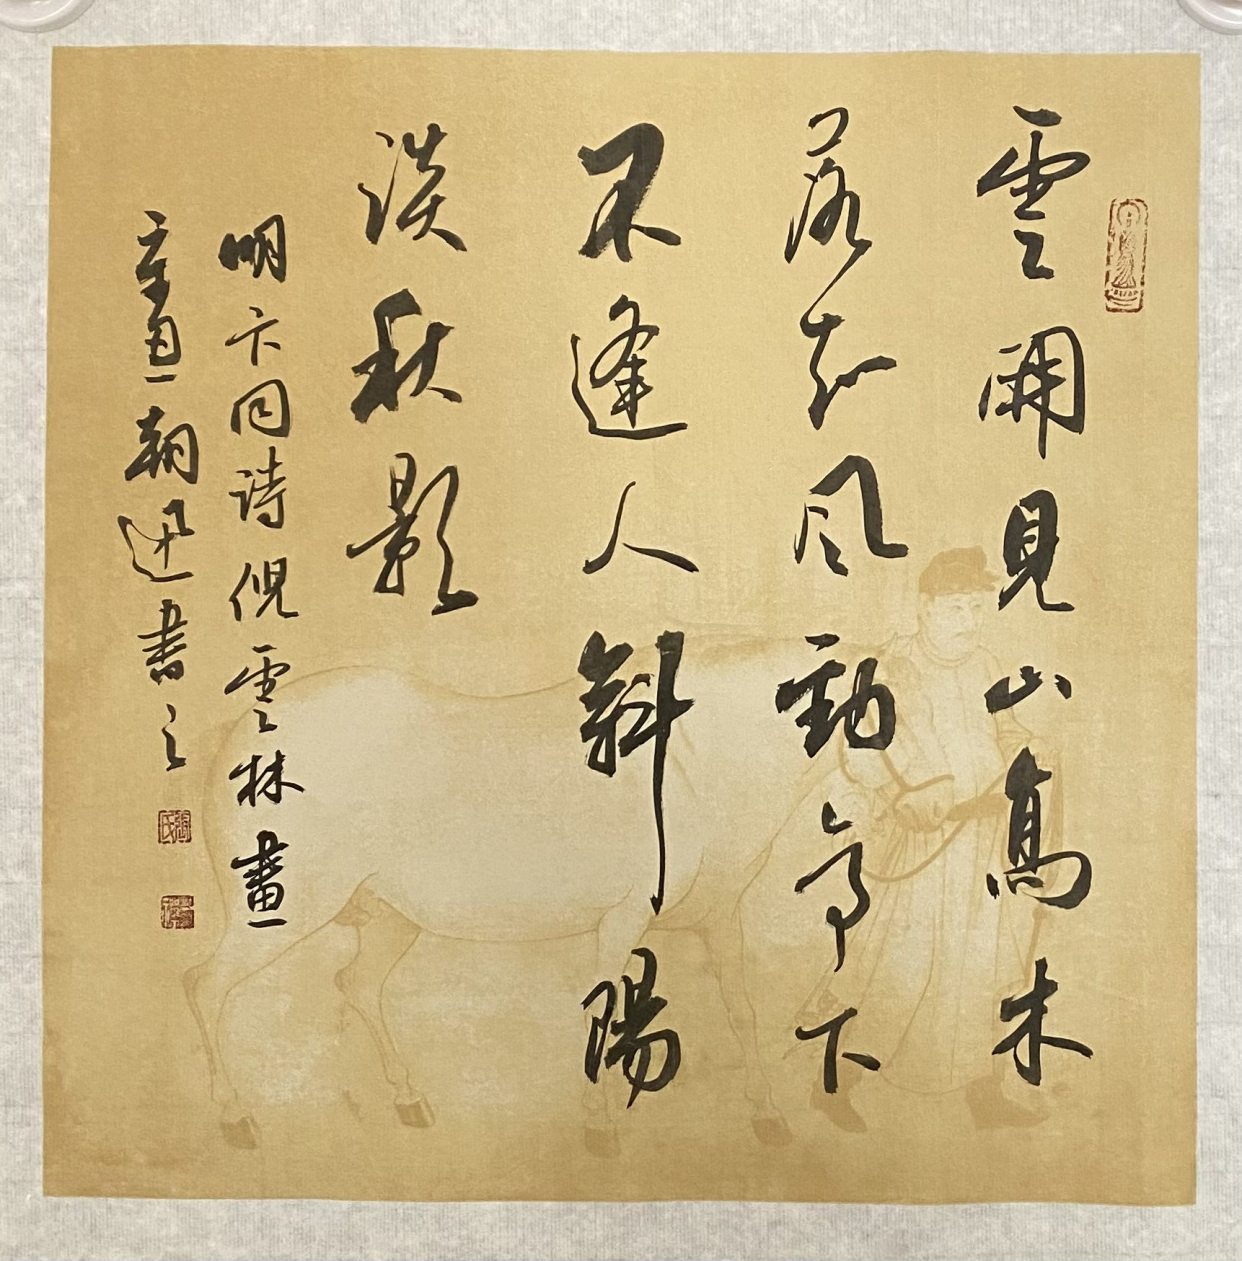 雲開見山高木
落知風勁亭下
不逢人斜陽
淡秋影
明卞同詩倪雲林畫
辛丑朝迅書之
張氏